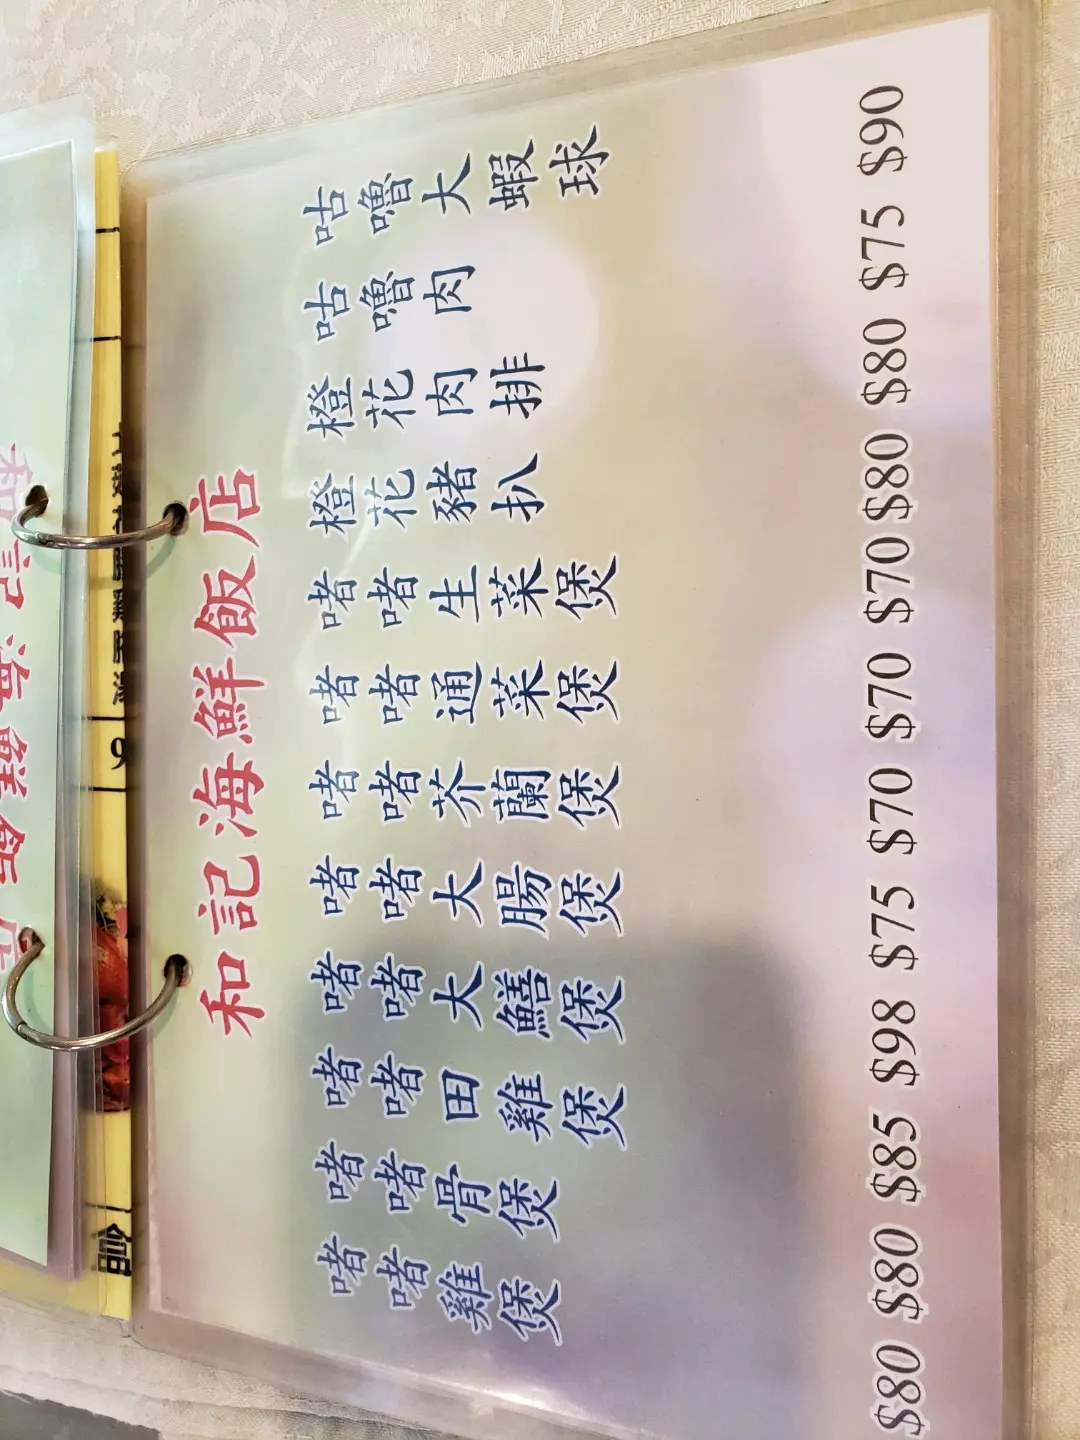 和記海鮮飯店
和記海鮮飯店
咕嚕大蝦球
咕嚕肉
橙花肉排
橙花豬扒
啫啫生菜煲
啫啫通菜煲
啫啫芥蘭煲
啫啫大腸煲
啫啫大鱔煲
啫啫田雞煲
啫啫骨煲
啫啫雞煲
$80 $80 $85 $98 $75 $70 $70 $70 $80 $80 $75 $90